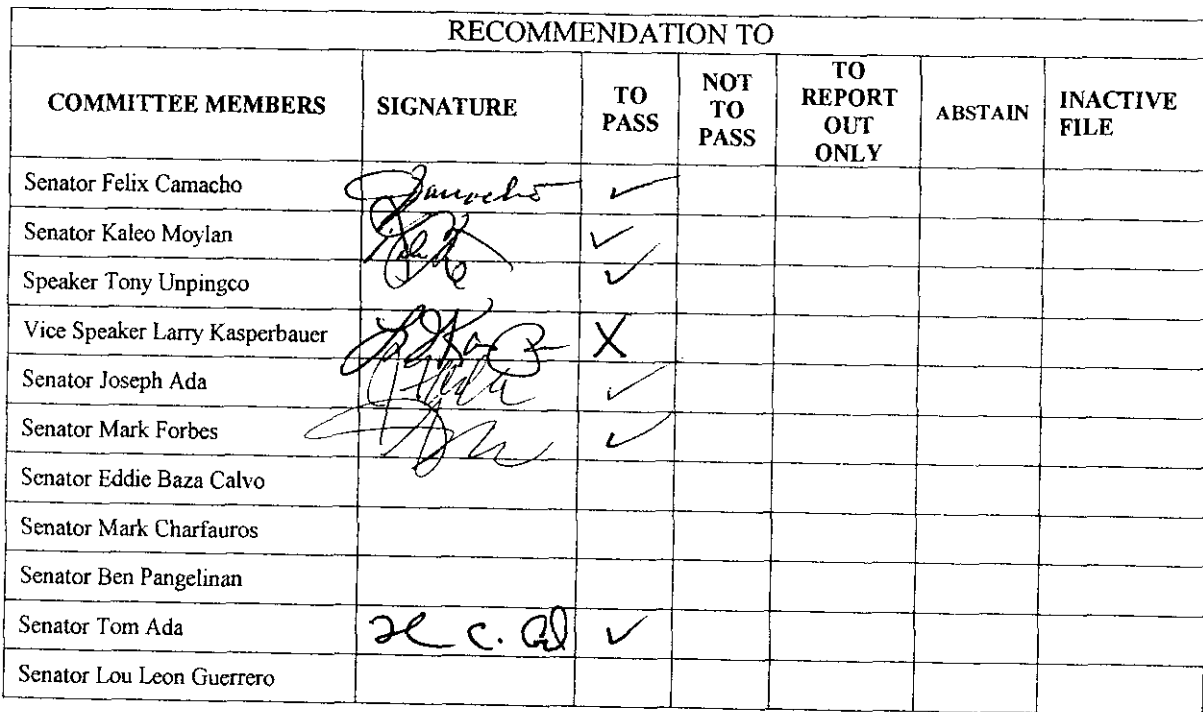 RECOMMENDATION TO
COMMITTEE MEMBERS SIGNATURE TO PASS NOT TO PASS TO REPORT OUT ONLY ABSTAIN INACTIVE FILE
Senator Felix Camacho ✓
Senator Kaleo Moylan ✓
Speaker Tony Unpingco ✓
Vice Speaker Larry Kasperbauer X
Senator Joseph Ada ✓
Senator Mark Forbes ✓
Senator Eddie Baza Calvo
Senator Mark Charfauros
Senator Ben Pangelinan
Senator Tom Ada ✓
Senator Lou Leon Guerrero